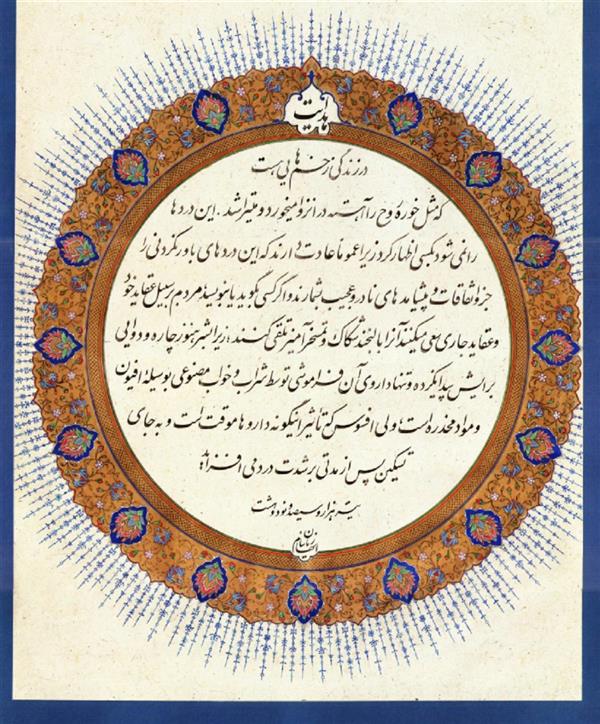 هدایت
در زندگی زخم‌هایی هست
که مثل خوره روح را آهسته در انزوا میخورد و میتراشد. این دردها
را نمی‌شود بکسی اظهار کرد زیرا عموماً عادت دارند که این دردهای باورنکردنی را
جزو اتفاقات و پیشامدهای نادر و عجیب بشمارند و اگر کسی بگوید یا بنویسد مردم بر سبیل عقاید خود
و عقاید جاری سعی میکنند آنرا با لبخند شکاک و تمسخر آمیز تلقی کنند زیرا بشر هنوز چاره و دوایی
برایش پیدا نکرده و تنها داروی آن فراموشی توسط شراب و خواب مصنوعی بوسیله افیون
و مواد مخدره است ولی افسوس که تأثیر اینگونه داروها موقت است و به جای
تسکین پس از مدتی بر شدت درد می افزاید
یکهزار و سیصد و نود و هشت